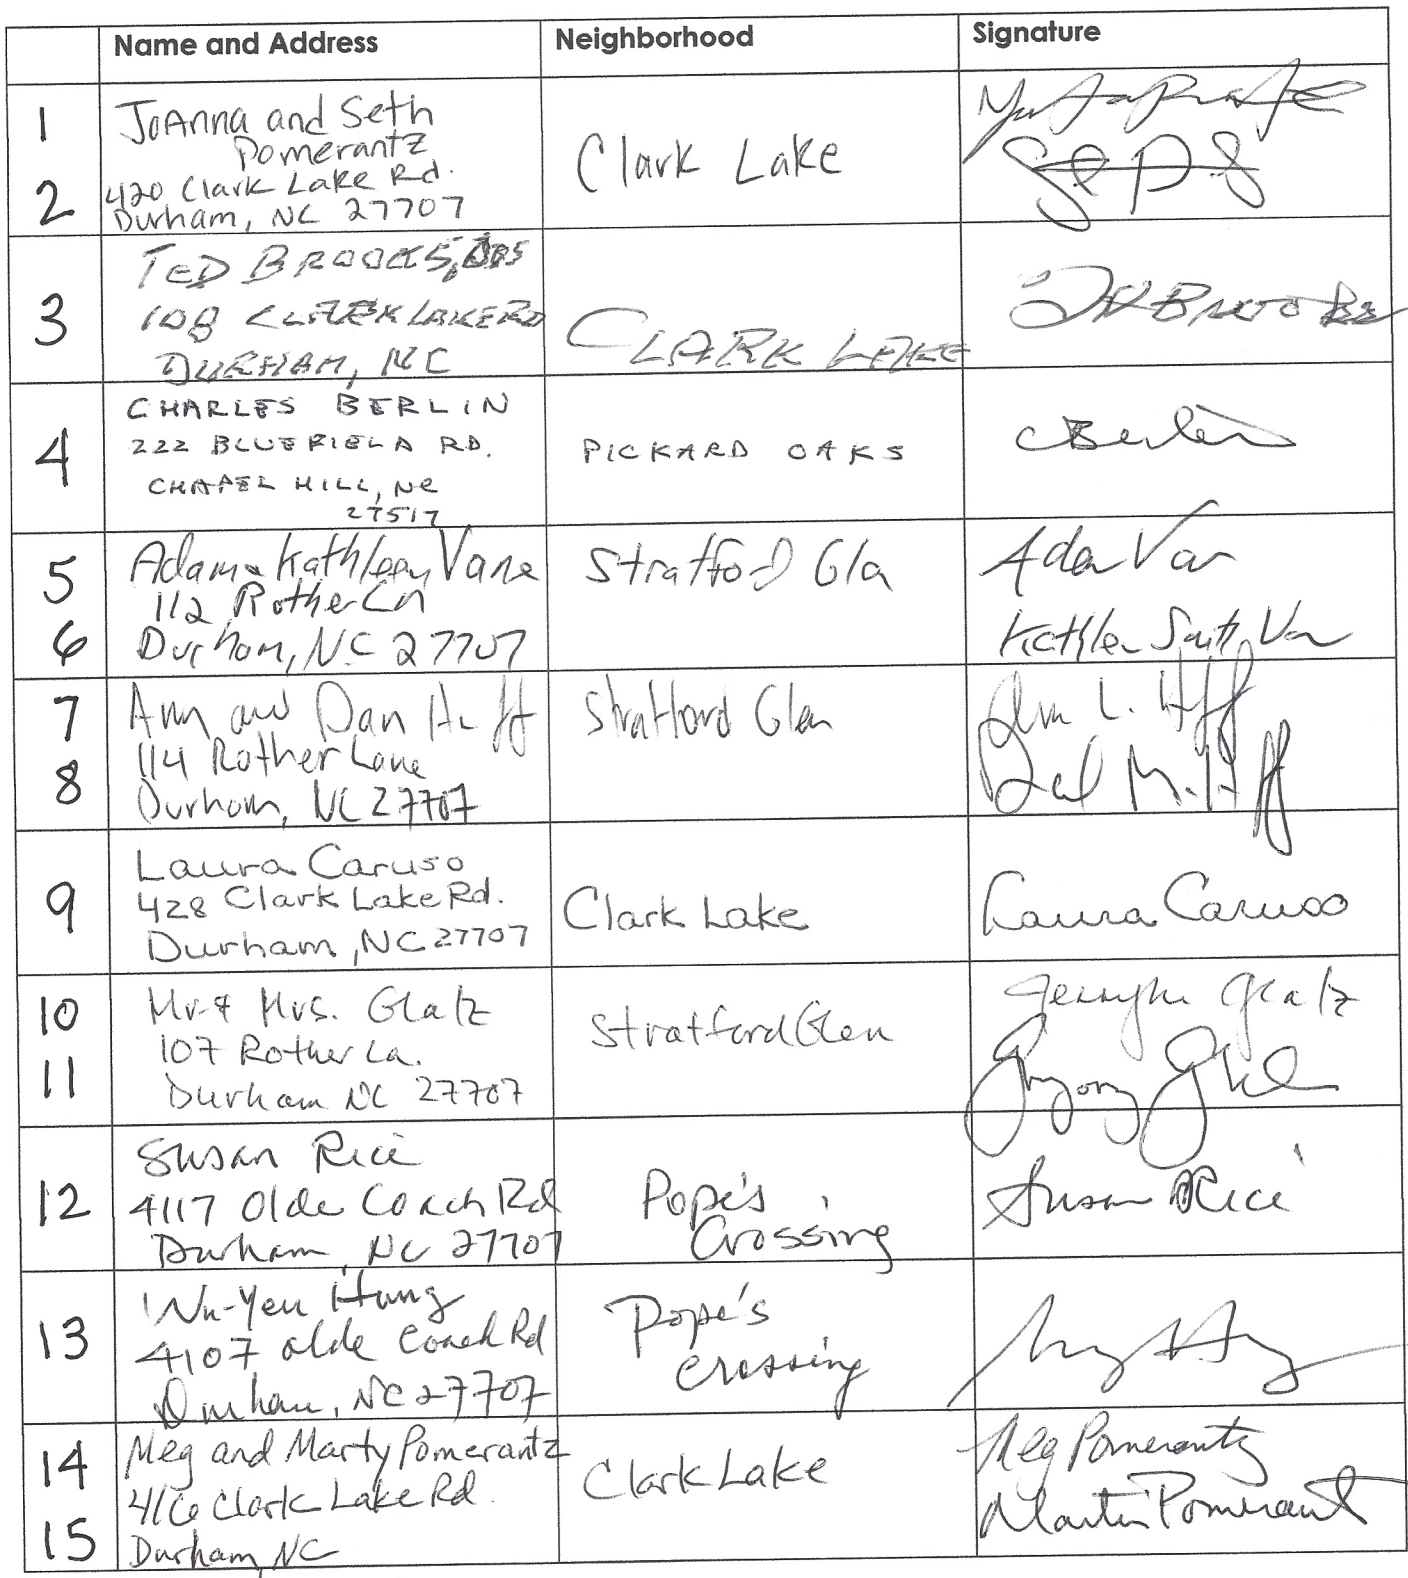 Name and Address Neighborhood Signature
1
2
JoAnna and Seth
Pomerantz
420 Clark Lake Rd.
Durham, NC 27707
Clark Lake
3
TED BROOKS, DDS
108 CLARK LAKE RD
DURHAM, NC
CLARK LAKE
Brooks
4
CHARLES BERLIN
222 BLUEFIELD RD.
CHAPEL HILL, NC
27517
PICKARD OAKS
CBerlin
5
6
Adam & Kathleen Vane
112 Rother Ln
Durham, NC 27707
Stratford Gln
Adam Van
Kathleen Smith Van
7
8
Ann and Dan Huff
114 Rother Lane
Durham, NC 27707
Stratford Glen
Ann L. Huff
M. Huff
9
Laura Caruso
428 Clark Lake Rd.
Durham, NC 27707
Clark Lake
Laura Caruso
10
11
Mr. & Mrs. Glatz
107 Rother La.
Durham NC 27707
Stratford Glen
Glatz
Gregory
12
Susan Rice
4117 Olde Coach Rd
Durham, NC 27707
Pope's
Crossing
Susan Rice
13
Wu-Yen Hung
4107 Olde Coach Rd
Durham, NC 27707
Pope's
Crossing
14
15
Meg and Marty Pomerantz
416 Clark Lake Rd.
Durham, NC
Clark Lake
Meg Pomerantz
Martin Pomerantz